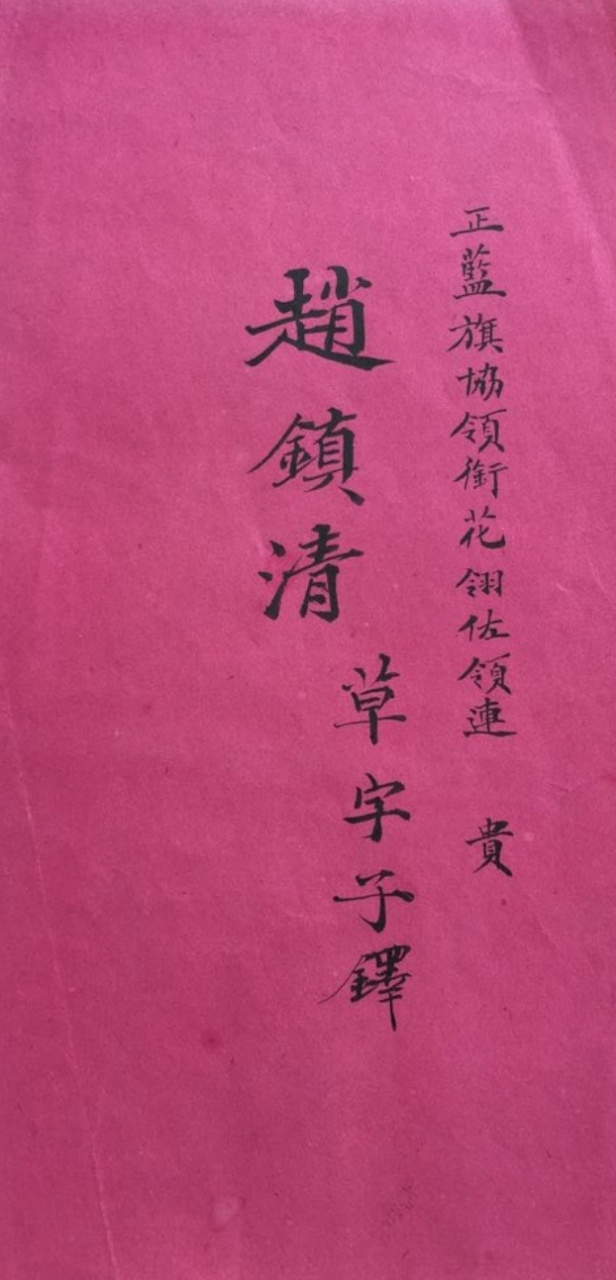 正藍旗協領銜花翎佐領連 貴
趙鎮清
草字子鐸